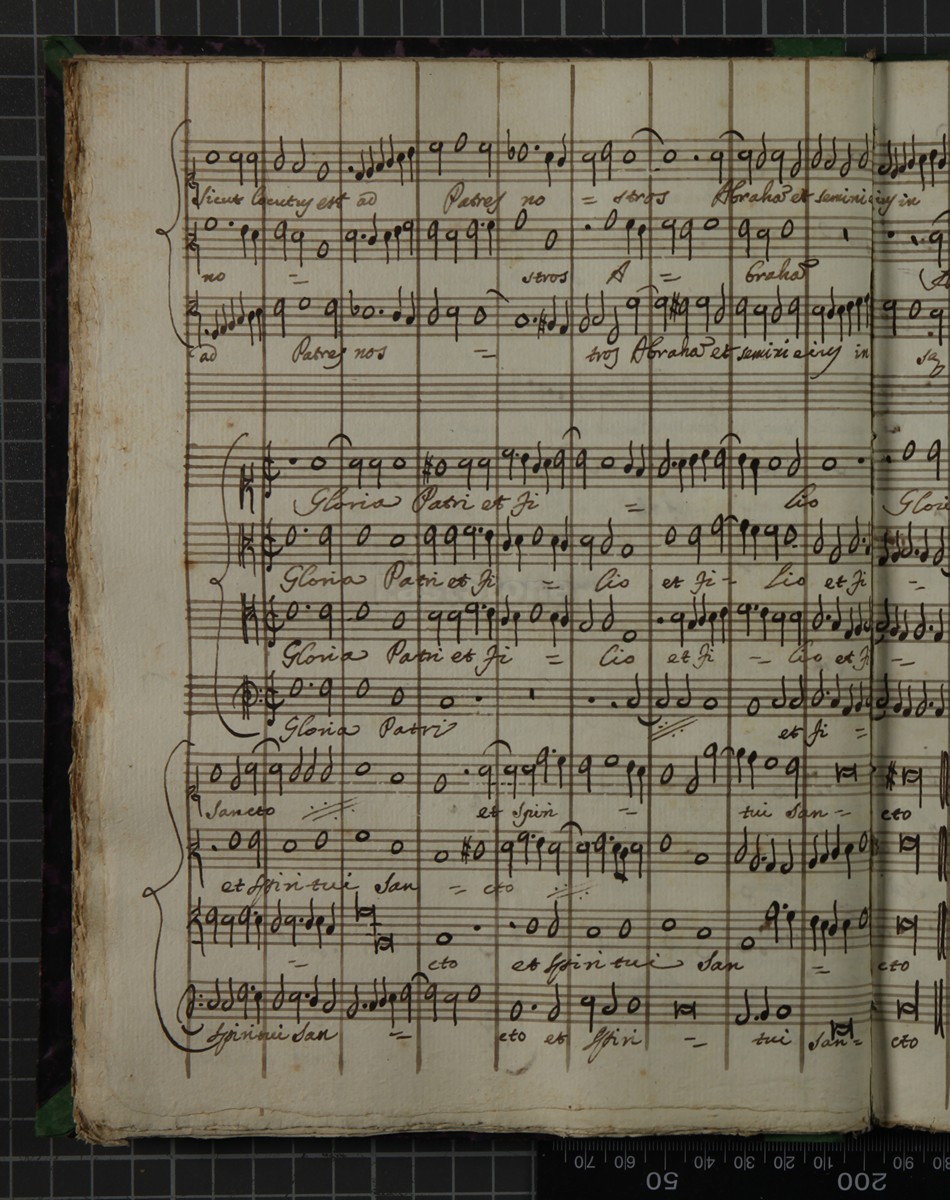 Sicut locutus est ad Patres no = stros Abraha et semini eius in
no = stros A = braha
ad Patres nos = tros Abraha et semini eius in
Gloria Patri et Fi = lio Glori
Gloria Patri et Fi = lio et Fi - lio et Fi =
Gloria Patri et Fi = lio et Fi = lio et Fi =
Gloria Patri et Fi =
Sancto et Spiri = tui San = cto
et Spiri tui San = cto
= cto et Spiri tui San = cto
Spiritui San = cto et Spiri = tui San = cto
70 60 50 40 30 20 10 200 90 80